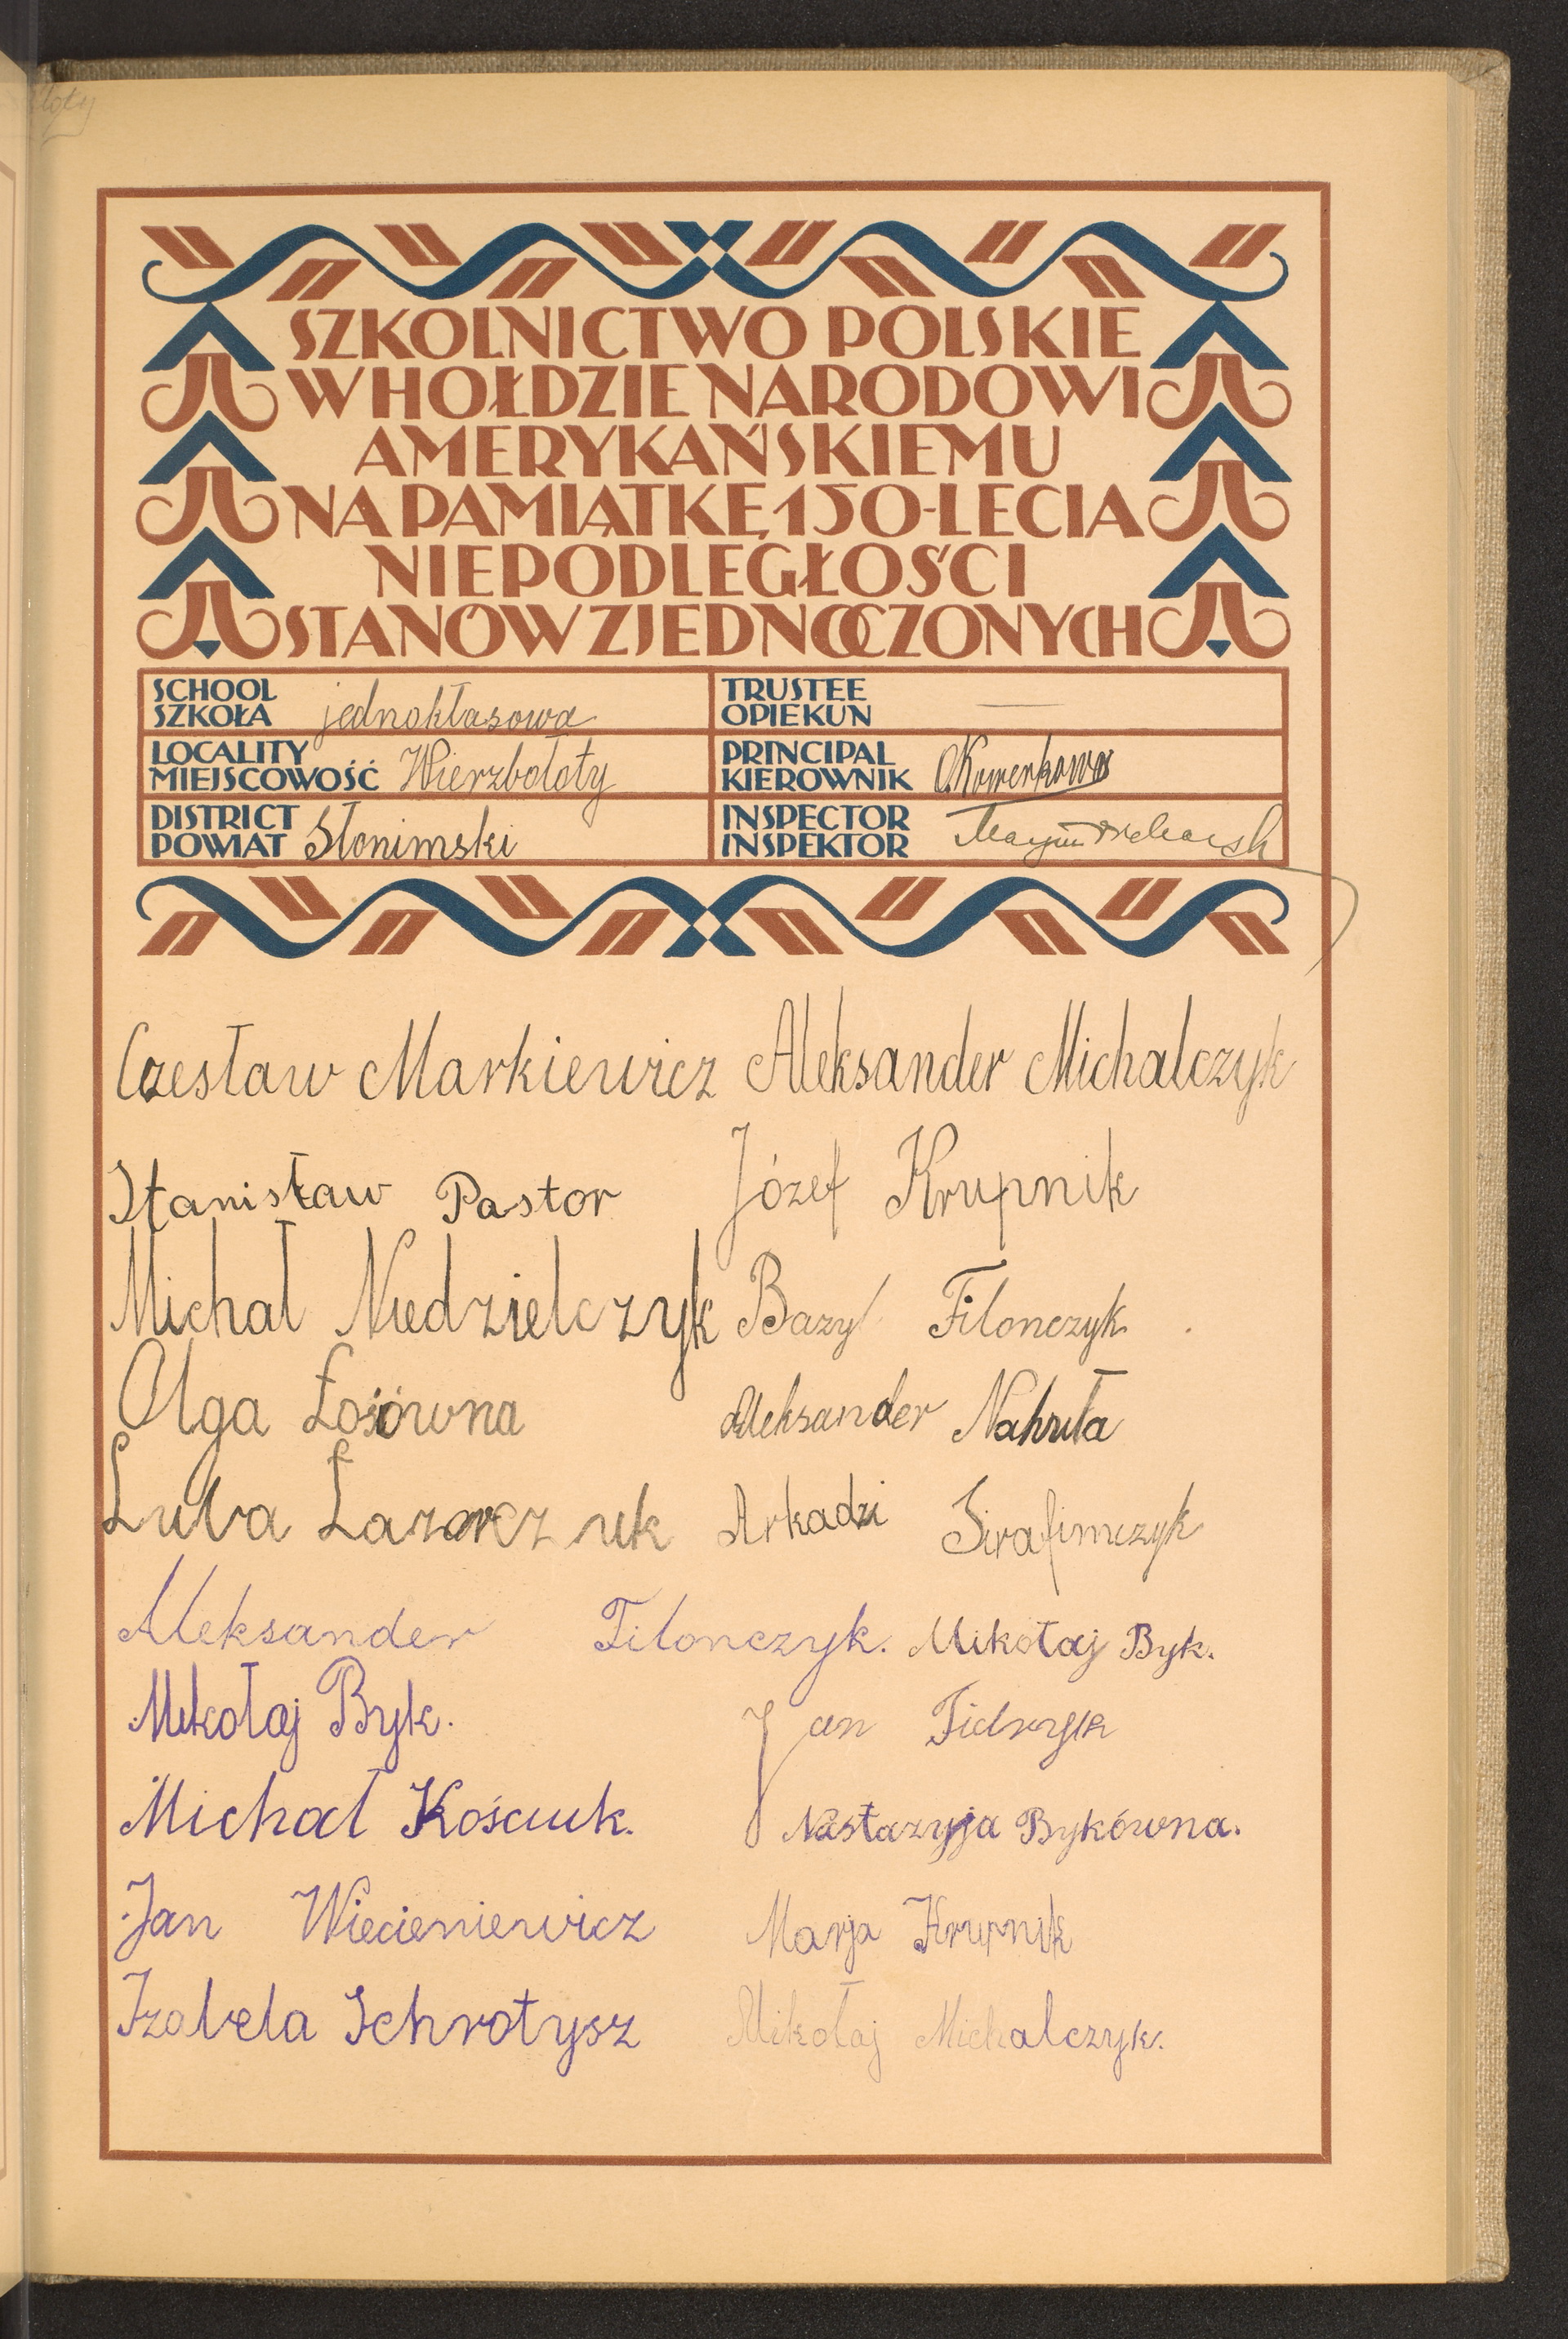 SZKOLNICTWO POLSKIE
W HOŁDZIE NARODOWI
AMERYKAŃSKIEMU
NA PAMIĄTKĘ 150-LECIA
NIEPODLEGŁOŚCI
STANÓW ZJEDNOCZONYCH
SCHOOL
SZKOŁA jednokłasowa
TRUSTEE
OPIEKUN —
LOCALITY
MIEJSCOWOŚĆ Wierzbołoty
PRINCIPAL
KIEROWNIK
DISTRICT
POWIAT Słonimski
INSPECTOR
INSPEKTOR
Czesław Markiewicz Aleksander Michalczyk
Stanisław Pastor Józef Krupnik
Michał Niedzielczyk Bazyl Filonczyk
Olga Łosiówna Aleksander Nahuła
Luba Łazarczuk Arkadzi Sirafimczyk
Aleksander Filonczyk. Mikołaj Byk.
Mikołaj Byk. Jan Fidryk
Michał Kościuk. Nastazyja Bykówna.
Jan Wiecieniewicz Marja Krupnik
Izabela Schrotysz Mikołaj Michalczyk.